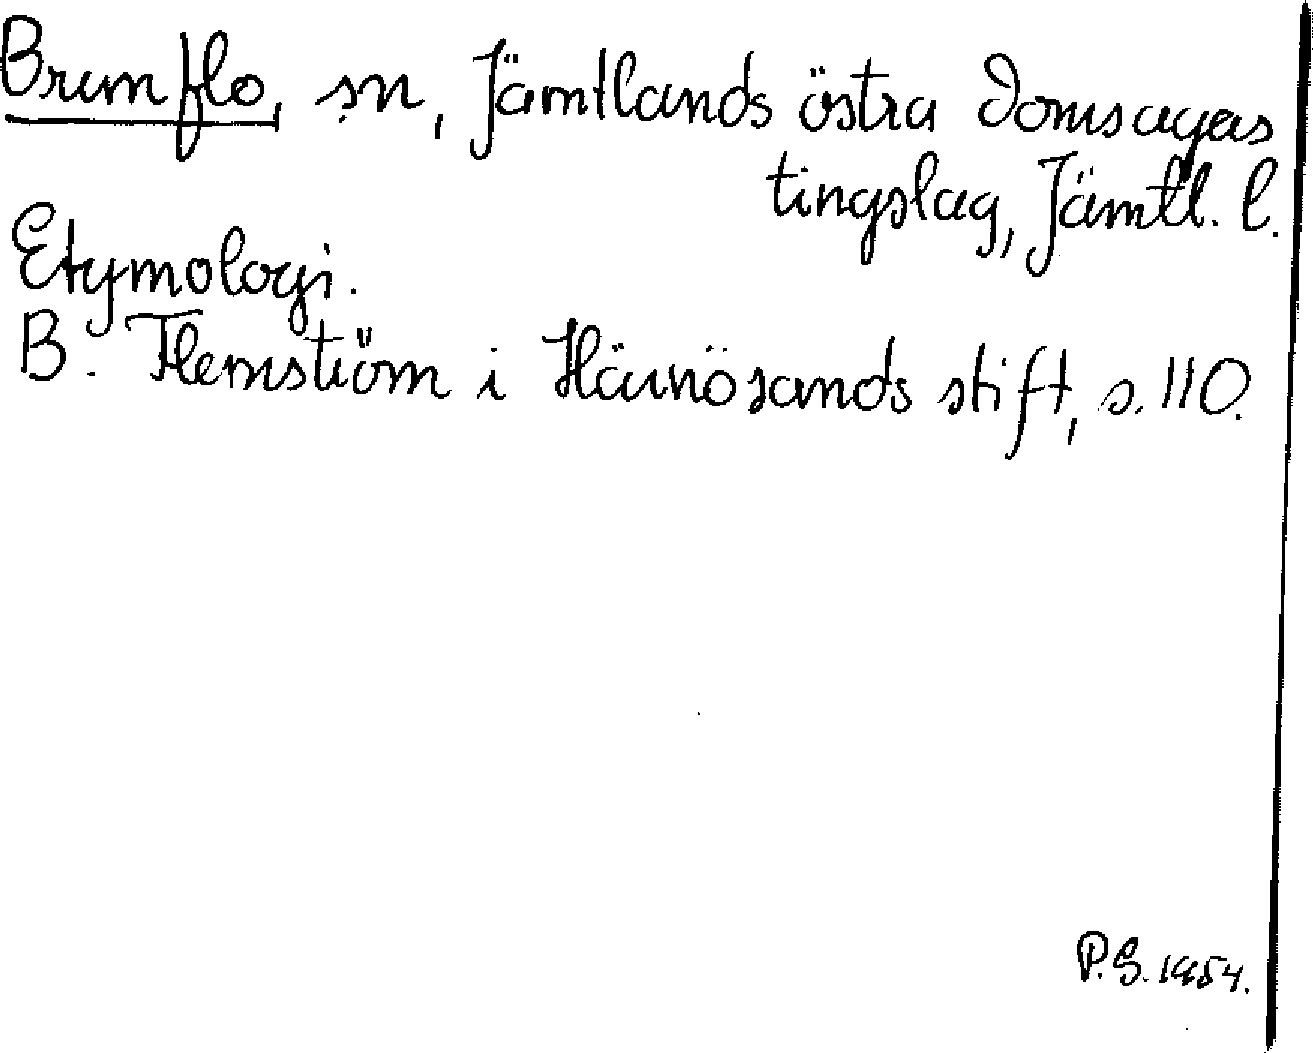 Brunflo, sn, Jämtlands östra domsagas
tingslag, Jämtl. l.
Etymologi.
B. Flemström i Härnösands stift, s. 110.
P.S. 1954.